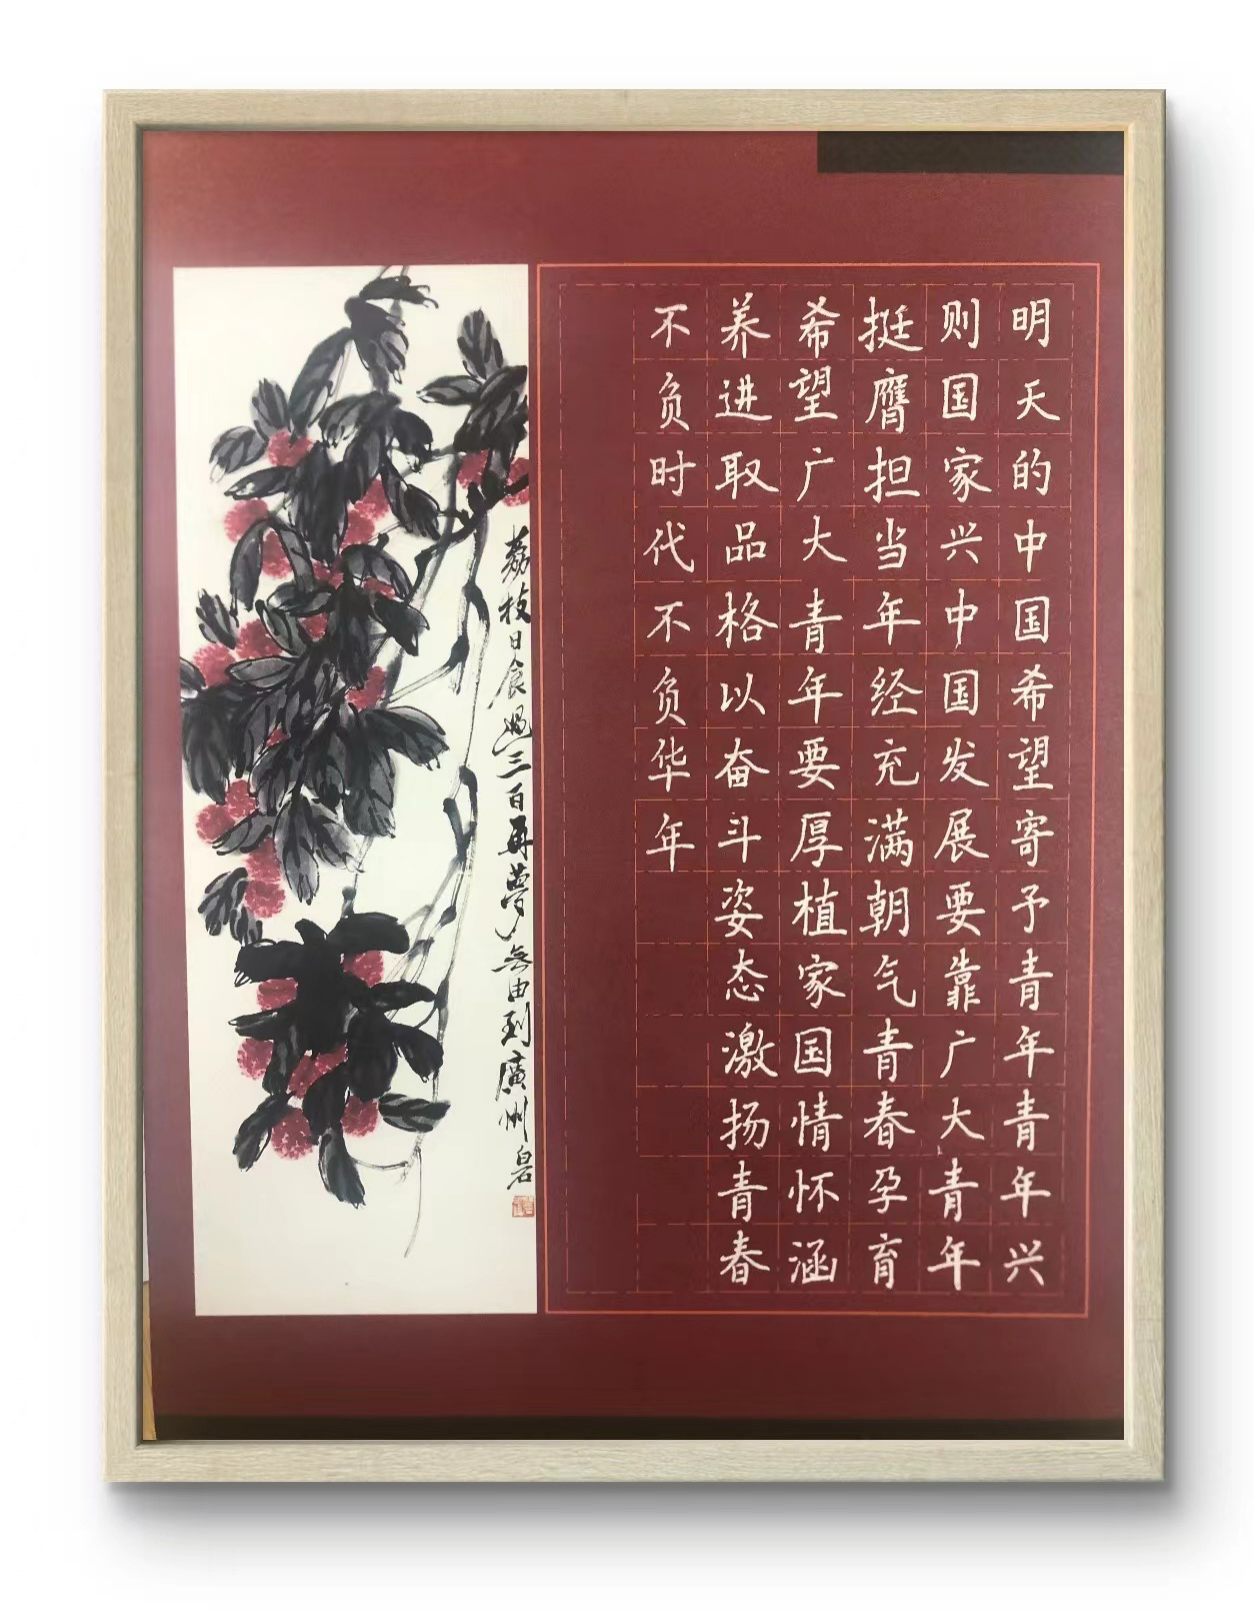 明天的中国希望寄予青年青年兴
则国家兴中国发展要靠广大青年
挺膺担当年经充满朝气青春孕育
希望广大青年要厚植家国情怀涵
养进取品格以奋斗姿态激扬青春
不负时代不负华年
荔枝日食過三百再夢無由到廣州